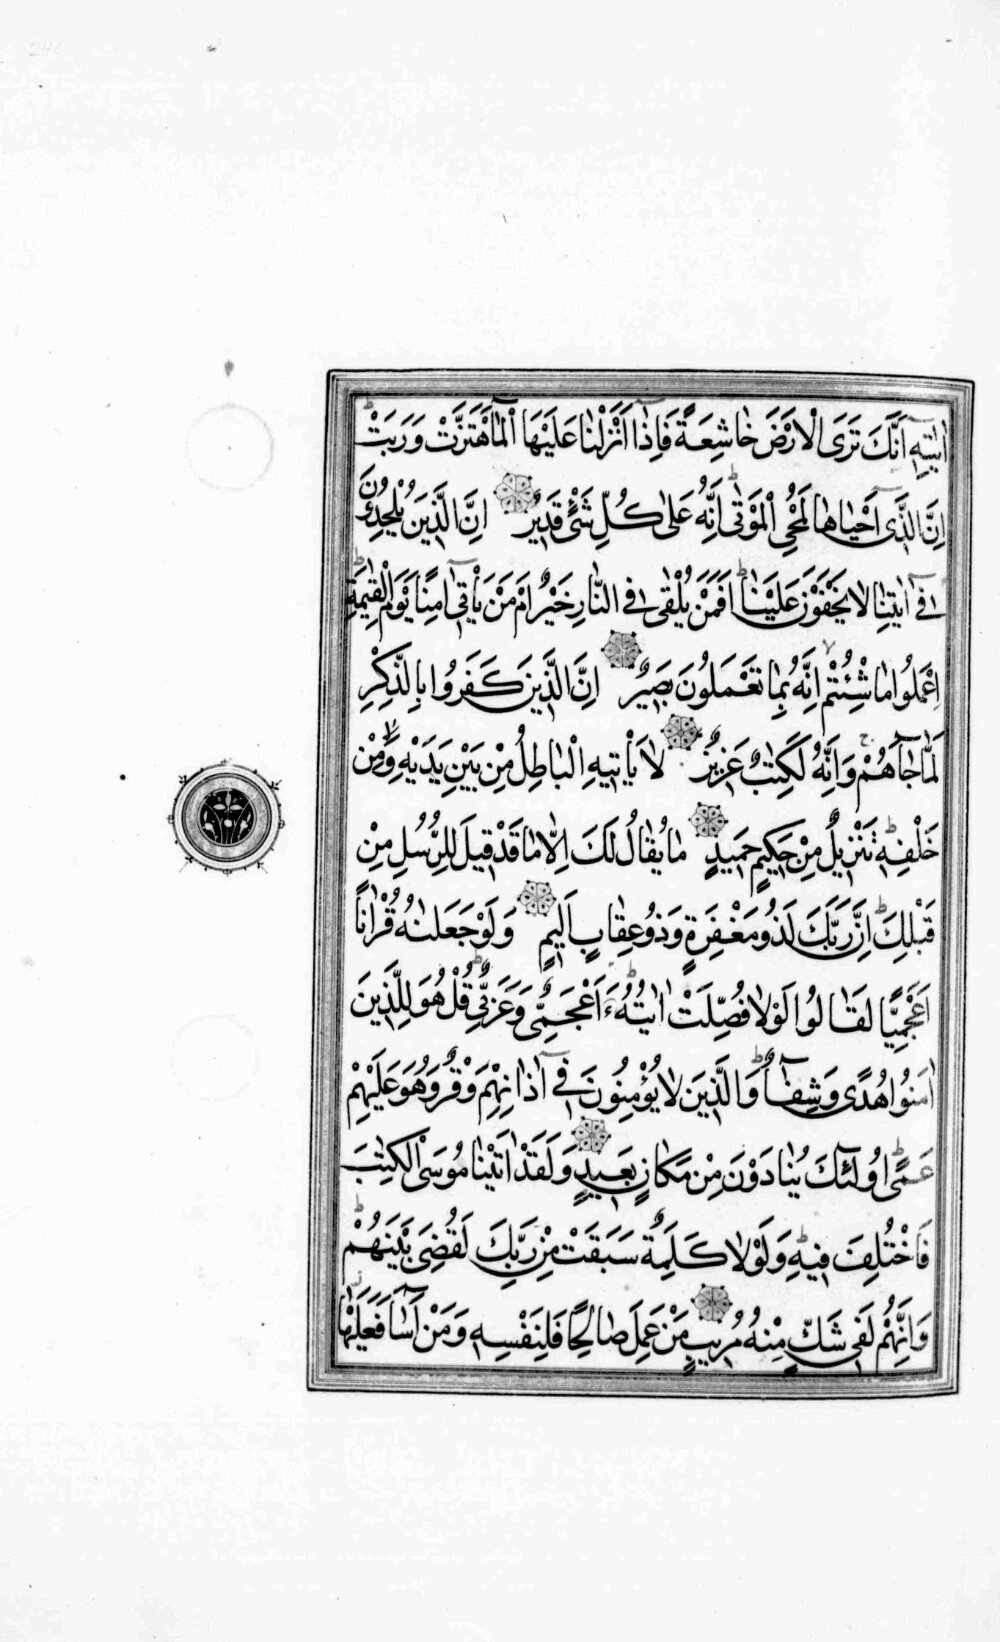 اٰيٰتِهٖ اَنَّكَ تَرَى الْاَرْضَ خَاشِعَةً فَاِذَا اَنْزَلْنَا عَلَيْهَا الْمَٓا اهْتَزَّتْ وَرَبَتْ
اِنَّ الَّذٖٓى اَحْيَاهَا لَمُحْىِ الْمَوْتٰى اِنَّهُ عَلٰى كُلِّ شَىْءٍ قَدِيرٌ اِنَّ الَّذِينَ يُلْحِدُونَ
فٖٓى اٰيٰتِنَا لَا يَخْفَوْنَ عَلَيْنَا اَفَمَنْ يُلْقٰى فِى النَّارِ خَيْرٌ اَمْ مَنْ يَأْتٖٓى اٰمِنًا يَوْمَ الْقِيٰمَةِ
اِعْمَلُوا مَا شِئْتُمْ اِنَّهُ بِمَا تَعْمَلُونَ بَصِيرٌ اِنَّ الَّذِينَ كَفَرُوا بِالذِّكْرِ
لَمَّا جَٓاهُمْ وَاِنَّهُ لَكِتٰبٌ عَزِيزٌ لَا يَأْتِيهِ الْبَاطِلُ مِنْ بَيْنِ يَدَيْهِ وَمِنْ
خَلْفِهٖ تَنْزِيلٌ مِنْ حَكِيمٍ حَمِيدٍ مَا يُقَالُ لَكَ اِلَّا مَا قَدْ قِيلَ لِلرُّسُلِ مِنْ
قَبْلِكَ اِنَّ رَبَّكَ لَذُو مَغْفِرَةٍ وَذُو عِقَابٍ اَلِيمٍ وَلَوْ جَعَلْنٰهُ قُرْاٰنًا
اَعْجَمِيًّا لَقَالُوا لَوْلَا فُصِّلَتْ اٰيٰتُهُ ءَاَعْجَمِىٌّ وَعَرَبِىٌّ قُلْ هُوَ لِلَّذِينَ
اٰمَنُوا هُدًى وَشِفَٓاٌ وَالَّذِينَ لَا يُؤْمِنُونَ فٖٓى اٰذَانِهِمْ وَقْرٌ وَهُوَ عَلَيْهِمْ
عَمًى اُولٰٓئِكَ يُنَادَوْنَ مِنْ مَكَانٍ بَعِيدٍ وَلَقَدْ اٰتَيْنَا مُوسَى الْكِتٰبَ
فَاخْتُلِفَ فِيهِ وَلَوْلَا كَلِمَةٌ سَبَقَتْ مِنْ رَبِّكَ لَقُضِىَ بَيْنَهُمْ
وَاِنَّهُمْ لَفٖى شَكٍّ مِنْهُ مُرِيبٍ مَنْ عَمِلَ صَالِحًا فَلِنَفْسِهٖ وَمَنْ اَسَٓا فَعَلَيْهَا